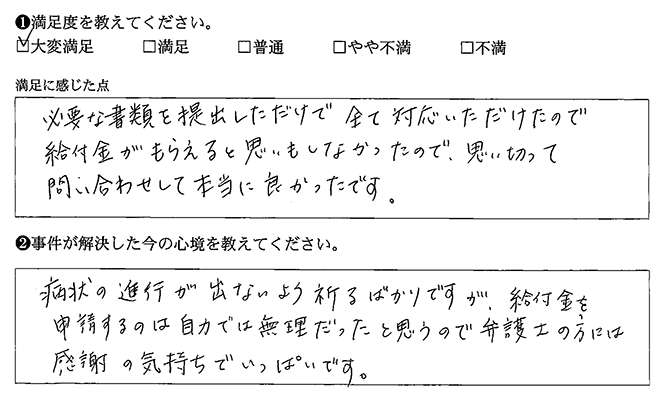 ❶満足度を教えてください。
☑大変満足 □満足 □普通 □やや不満 □不満
満足に感じた点
必要な書類を提出しただけで全て対応いただけたので
給付金がもらえると思いもしなかったので、思い切って
問い合わせして本当に良かったです。
❷事件が解決した今の心境を教えてください。
病状の進行が出ないよう祈るばかりですが、給付金を
申請するのは自力では無理だったと思うので弁護士の方には
感謝の気持ちでいっぱいです。